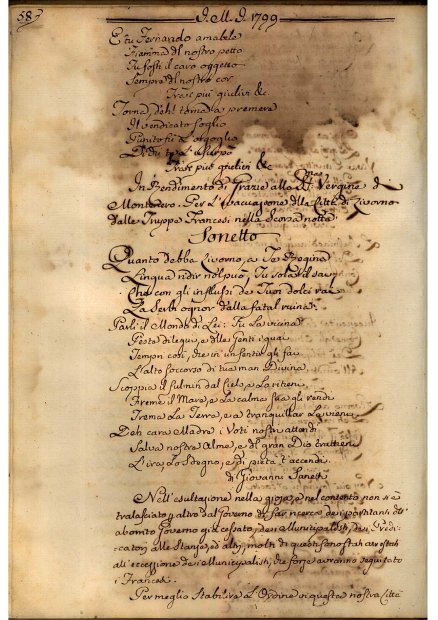 58
I. M. I. 1799
E tu Fernando amabile
Fiamma del nostro petto
Tu fosti il caro oggetto
Sempre del nostro cor
Frasi più giulivi &c.
Torna, deh! torna a premere
Il vendicato soglio
Punito fù l'orgoglio
più giulivi &c
In Rendimento di Grazie alla SS. Vergine di
Montenero. Per l'evacuazione della Città di Livorno
dalle Truppe Francesi nella scorsa notte
Sonetto
Quanto debba Livorno, a Te o Regina
Lingua ridir nol può, Tu sola il sai
Che con gli influssi de Tuoi dolci rai
La Serbi ognor dalla fatal ruina.
Parli il Mondo di Lei: Tu La vicina
Peste dilegui, e delle Genti i guai
Tempri così, che in un sentir gli fai
L'alto soccorso di tua man Divina.
Scoppia il fulmin dal Cielo, e La ritieni
Freme il Mare, e La calma sea gli rendi
Trema La Terra, e a tranquillar La vieni
Deh cara Madre i Voti nostri attendi
Salva nostre Alme, e del gran Dio trattieni
L'ira, Lo Sdegno, e di pietà l'accendi.
di Giovanni
Nell'esultazione nella gioja, e nel contento non si è
tralasciato p altro dal Governo di far ricerca dei partitanti dell'
abolito Governo già cessato, dei Municipalisti, dei Predi-
catori alle Stanze, ed altri, molti di questi sono stati arrestati
all'eccezione dei Municipalisti, che forse avranno seguitato
i Francesi.
Per meglio Stabilire L'Ordine in questa nostra Città